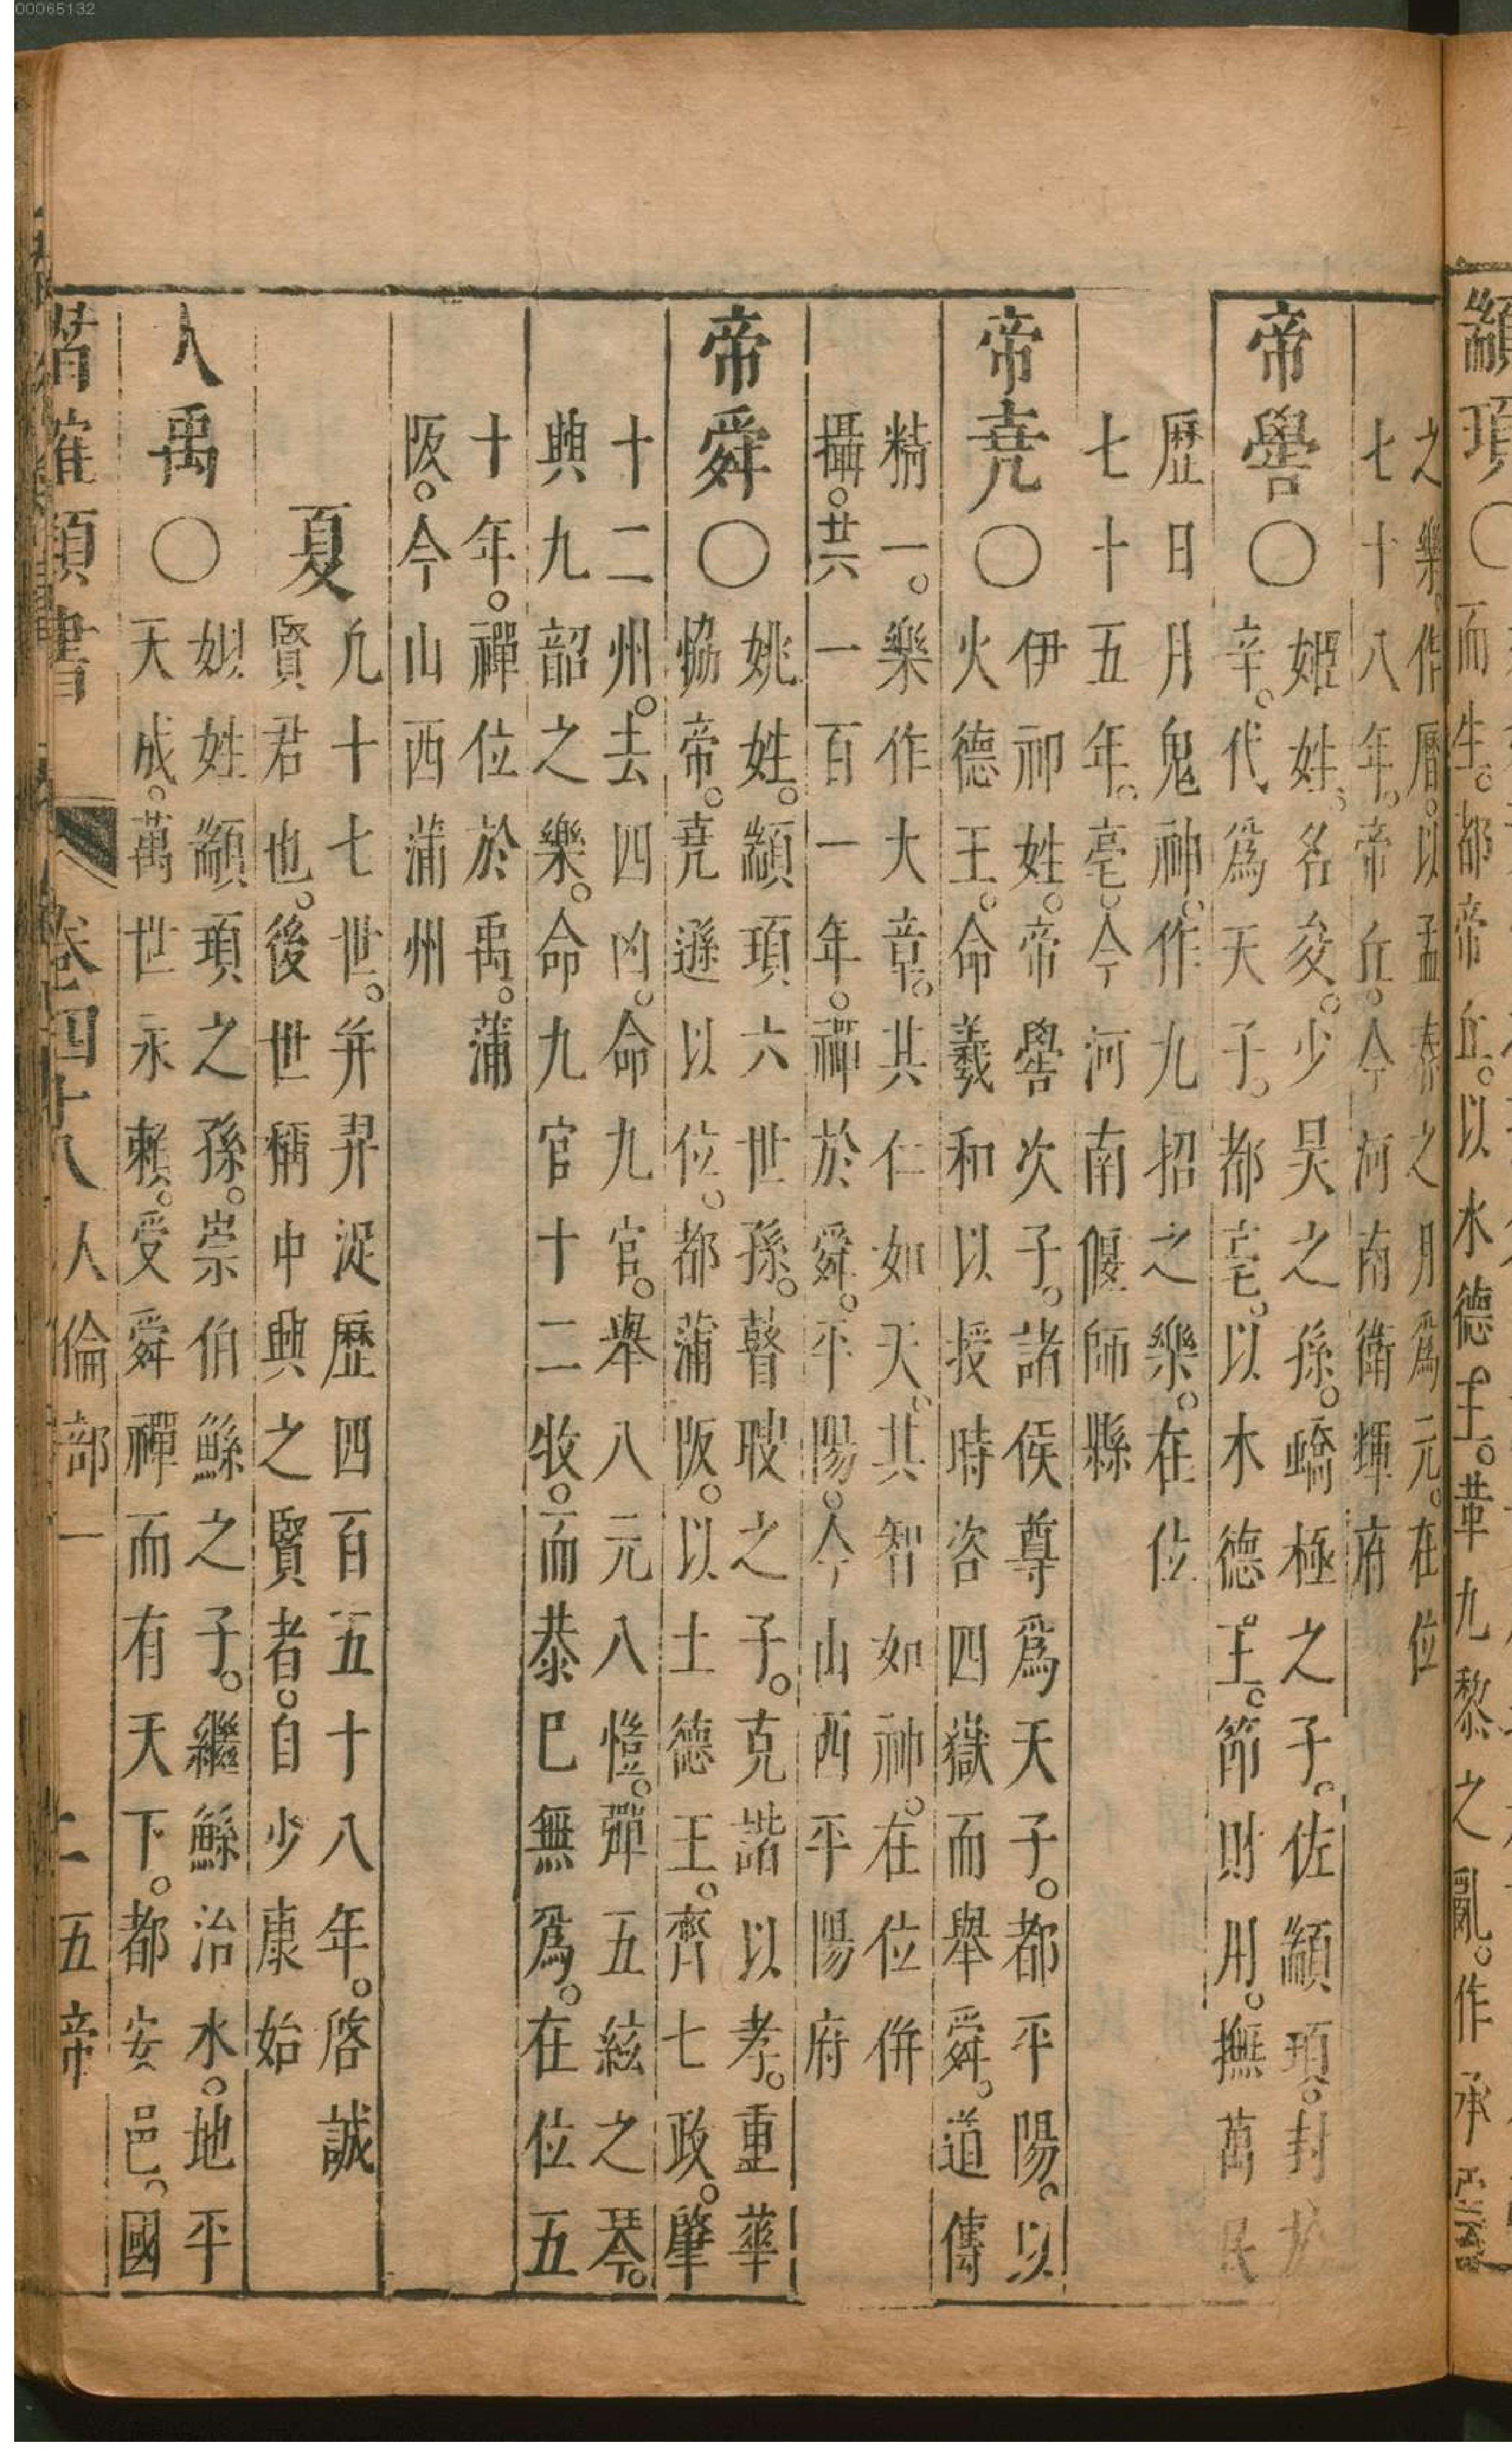 00065132
顓頊〇
而生。都帝丘。以水德王。革九黎之亂。作承
之樂。作曆。以孟春之月爲元。在位
七十八年。帝丘。今河南衛輝府
帝嚳〇
姬姓。名夋。少昊之孫。蟜極之子。佐顓頊。封於
辛。代爲天子。都亳。以木德王。節財用。撫萬民
歷日月鬼神。作九招之樂。在位
七十五年。亳。今河南偃師縣
帝堯〇
伊祁姓。帝嚳次子。諸侯尊爲天子。都平陽。以
火德王。命羲和以授時咨四嶽而舉舜。道傳
精一。樂作大章。其仁如天。其智如神。在位倂
攝。共一百一年。禪於舜。平陽。今山西平陽府
帝舜〇
姚姓。顓頊六世孫。瞽瞍之子。克諧以孝。重華
恊帝。堯遜以位。都蒲阪。以土德王。齊七政。肇
十二州。去四凶。命九官。舉八元八愷。彈五絃之琴。
興九韶之樂。命九官十二牧。而恭巳無爲。在位五
十年。禪位於禹。蒲
阪。今山西蒲州
夏
凢十七世。并羿浞歷四百五十八年。啓誠
賢君也。後世稱中興之賢者。自少康始
人禹〇
姒姓顓頊之孫。崇伯鯀之子。繼鯀治水。地平
天成。萬世永賴。受舜禪而有天下。都安邑。國
潛確類書
卷四十八
人倫部一
二
五帝